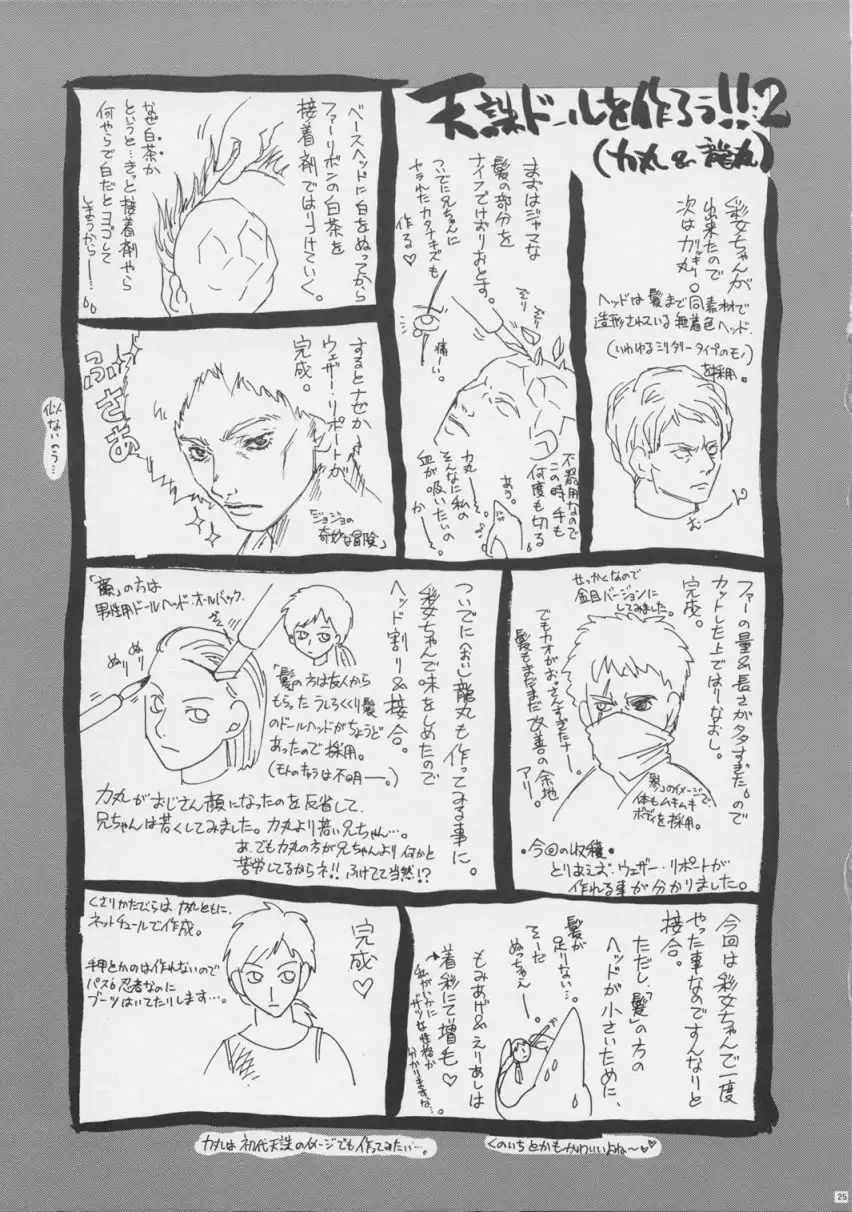 天誅ドールを作ろう!!:2
(力丸&龍丸)
彩女ちゃんが
出来たので
次は力丸。
ヘッドは髪まで同素材で
造形されている無着色ヘッド.
(いわゆるミリタリータイプのモノ)
を採用。
まずはジャマな
髪の部分を
ナイフでけずりおとす。
ついでに兄ちゃんに
ヤラれたカタナキズも
作る♡
痛ーい。
不器用なので
この時、手も
何度も切る
あう。
力丸ー…。
そんなに私の
血が吸いたいの
かー…。
ベースヘッドに白をぬってから
ファーリボンの白茶を
接着剤ではりつけていく。
なぜ白茶か
というと…きっと接着剤やら
何やらで白だとヨゴレて
しまうからー…。
するとナゼか
ウェザー・リポートが
完成。
ふさぁ
「ジョジョの
奇妙な冒険」
似ないのう…
ファーの量&長さが多すぎたので
カットした上ではりなおし。
完成。
せっかくなので
金目バージョンに
してみました。
でもカオがおっさんすぎたナー。
髪もまだまだ改善の余地
アリ。
「参」のイメージで
体もムキムキ
ボディを採用。
・今回の収穫・
とりあえず、ウェザー・リポートが
作れる事が分かりました。
ついでに(おい)龍丸も作ってみる事に。
彩女ちゃんで味をしめたので
ヘッド割り&接合。
「顔」の方は
男性用ドールヘッド・オールバック.
ぬり
ぬり
「髪」の方は友人から
もらったうしろくくり髪
のドールヘッドがちょうど
あったので採用。
(モトのキャラは不明ー。)
力丸がおじさん顔になったのを反省して、
兄ちゃんは若くしてみました。力丸より若い兄ちゃん…。
あ、でも力丸の方が兄ちゃんより何かと
苦労してるからネ!!ふけてて当然!?
今回は彩女ちゃんで一度
やった事なのですんなりと
接合。
ただし、「髪」の方の
ヘッドが小さいために、
髪が
足りない…。
えーい
ぬっちゃえー。
もみあげ&えりあしは
着彩にて増毛♡
私がいかに
ガサツな性格か
分かりますな…。
完成♡
くさりかたびらは力丸ともに、
ネットチュールで作成。
手甲とかのは作れないので
パス。忍者なのに
ブーツはいてたりします…。
力丸は初代天誅のイメージでも作ってみたい…。
くのいちとかもかわいいよね〜♡♡
25